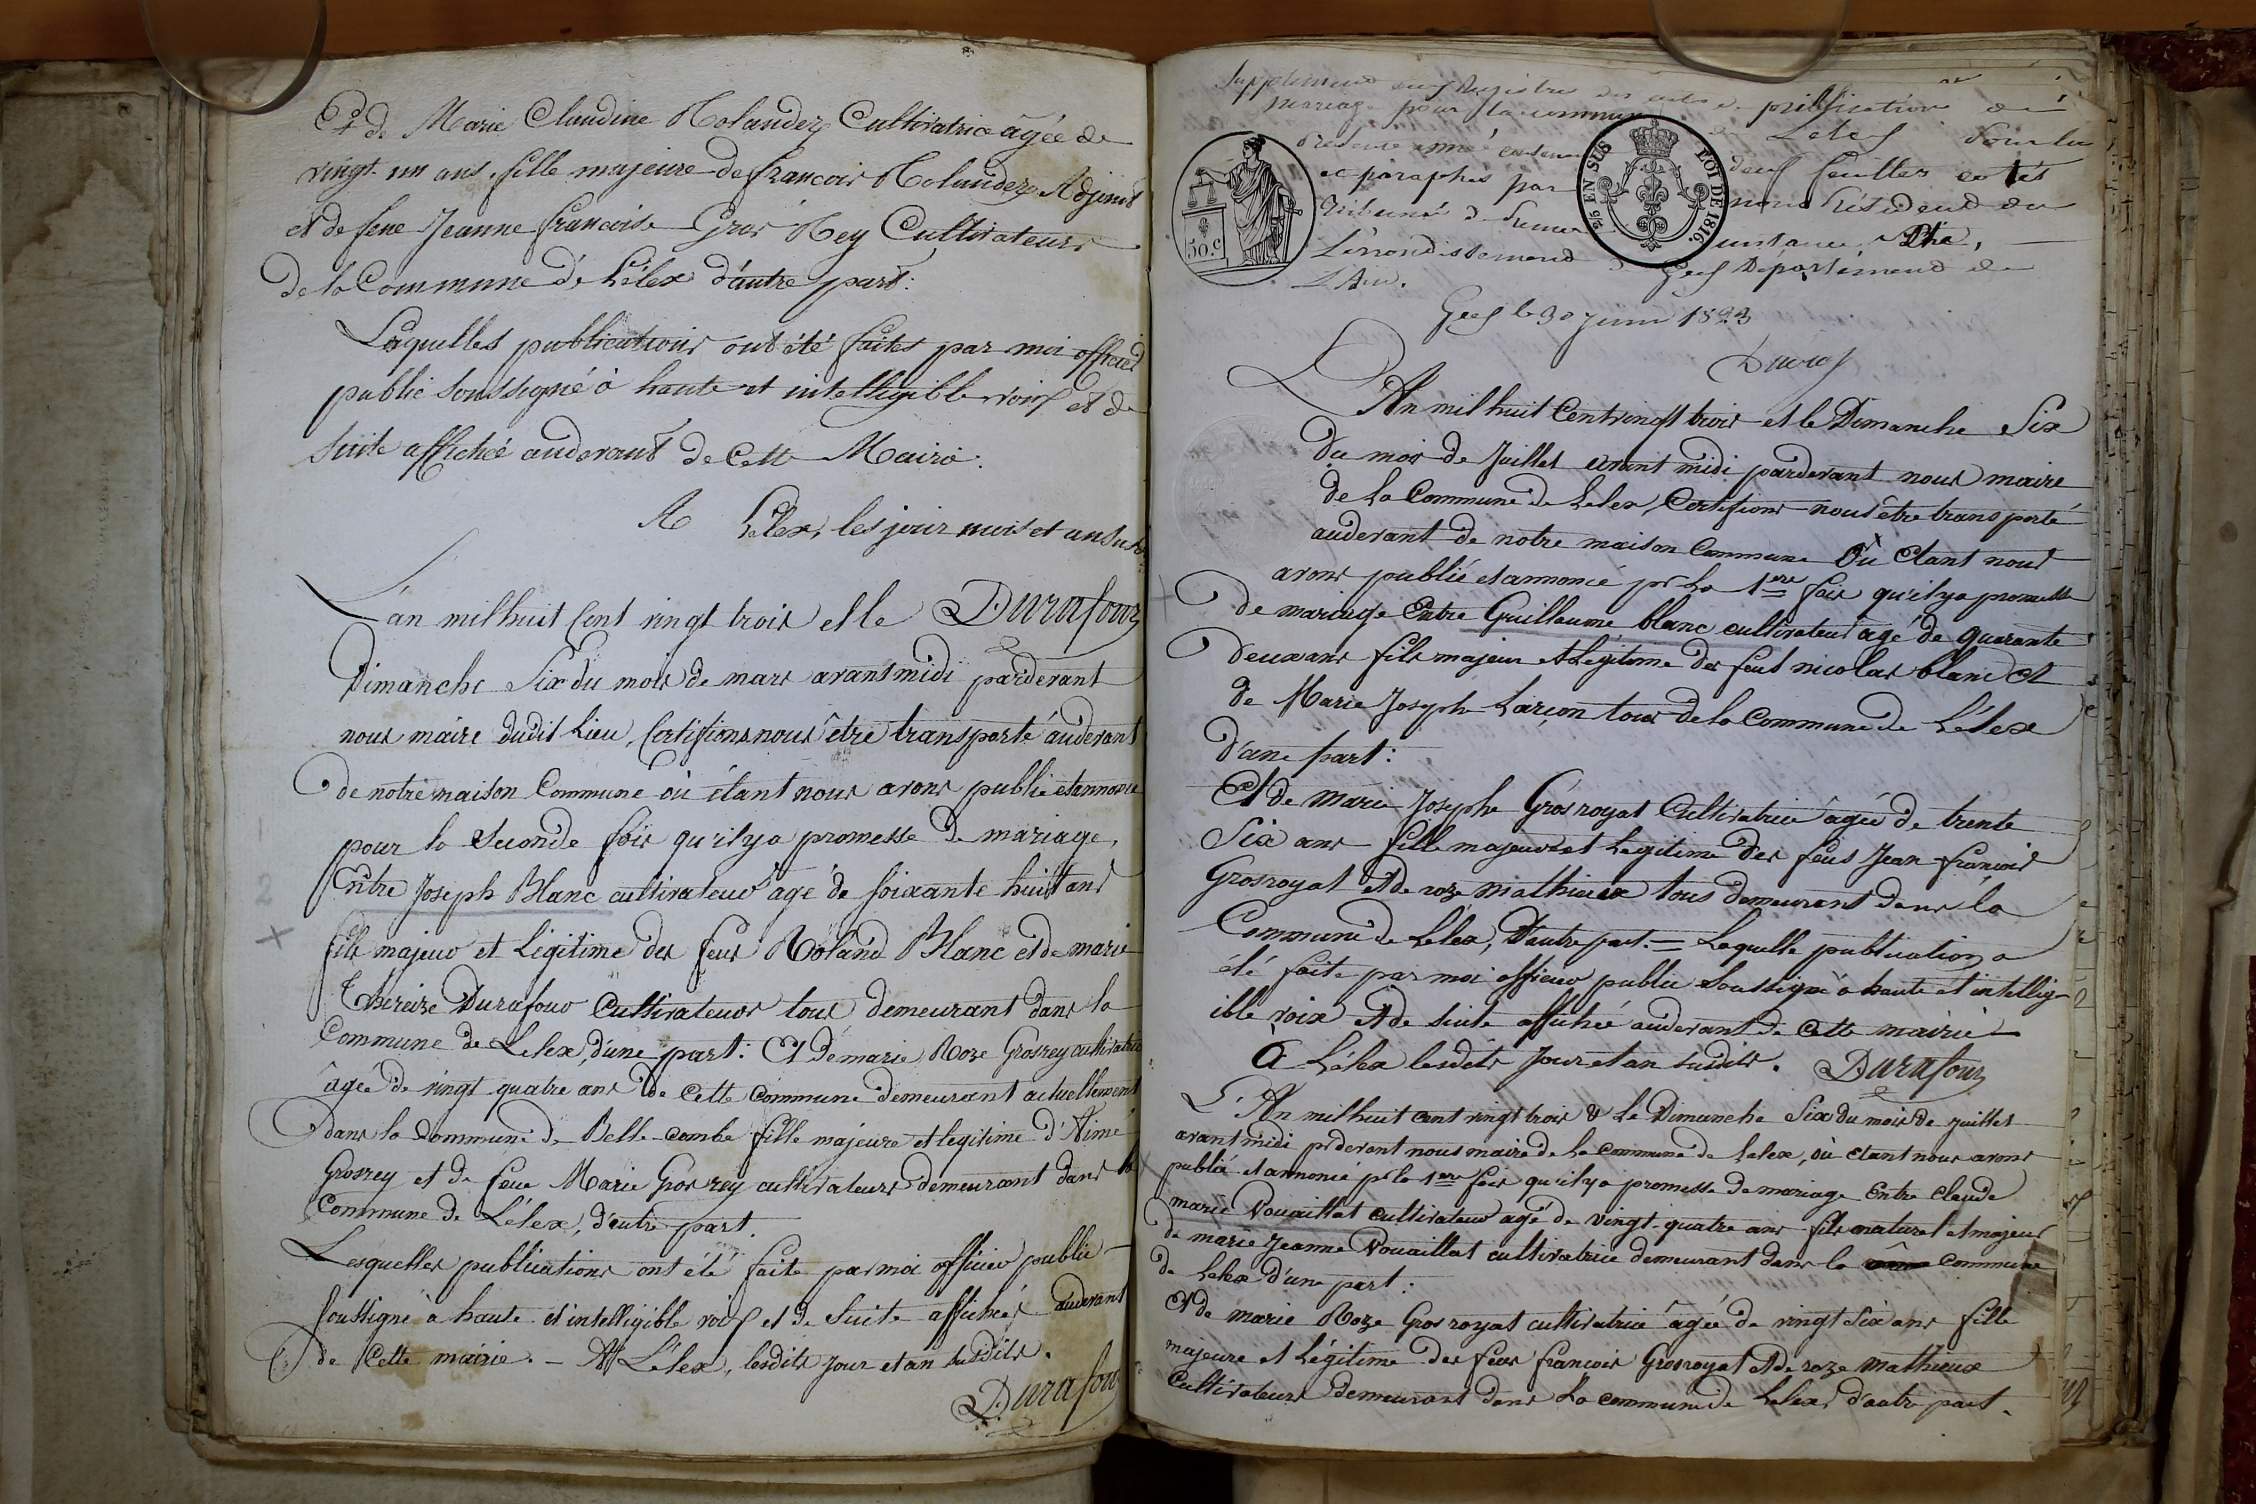 Et de Marie Claudine Rolandez Cultivatrice âgée de
vingt un ans, fille majeure de francois Rolandez Adjoint
et de feue Jeanne francoise Gros Rey Cultivateurs
de la Commune de Lélex d'autre part:
Lesquelles publications ont été faites par moi officier
public soussigné à haute et intelligible voix et de
suite affichée audevant de Cette Mairie.
A Lélex, les jour mois et an susd
L'an mil huit Cent vingt trois et le Durafour
Dimanche Six du mois de mars avant midi pardevant
nous maire dudit Lieu, Certifions nous être transporté audevant
de notre maison Commune où étant nous avons publié et annoncé
pour la Seconde fois qu'il y a promesse de mariage,
Entre Joseph Blanc cultivateur âgé de soixante huit ans
fils majeur et Légitime des feus Roland Blanc et de marie
Thereize Durafour Cultivateurs tous demeurant dans la
Commune de Lelex, d'une part: Et de marie Roze Grosrey cultivatrice
âgée de vingt quatre ans de Cette Commune demeurant actuellement
dans la Commune de Belle-combe fille majeure et legitime d'Aimé
Grosrey et de feue Marie Grosrey cultivateurs demeurant dans la
Commune de Lélex, d'autre part.
Lesquelles publications ont été faite par moi officier public
soussigné à haute et intelligible voix et de Suite affichées audevant
de Cette mairie. - A Lélex, lesdits Jour et an susdits.
Durafour
Supplement aux Registres des actes de publication de
mariage pour la commune de Lelex pour la
présente année contenant deux feuillets cotés
et paraphés par nous Président du
Tribunal de Premiere instance
L'arrondissement de Gex Département de
L'Ain.
50.c
25 EN SUS
LOI DE 1816.
Gex le 30 juin 1823
L'An mil huit Cent vingt trois et le Dimanche Six
du mois de Juillet avant midi pardevant nous maire
de la Commune de Lelex, Certifions nous être transporté
audevant de notre maison Commune Où Etant nous
avons publié et annoncé pr La 1ere fois qu'il y a promesse
de mariage Entre Guillaume blanc cultivateur agé de quarante
deux ans fils majeur et Légitime des feus nicolas blanc Et
de Marie Joseph Larçon tous de la Commune de Lélex
d'une part:
Et de Marie Josephe Grosroyat Cultivatrice âgée de trente
Six ans fille majeure et Legitime des feus Jean francois
Grosroyat et de roze Mathieux tous demeurant dans la
Commune de Lelex, D'autre part. = Laquelle publication a
été faite par moi officier public Soussigné à haute et intellig-
ible voix et de Suite affichée audevant de Cette mairie
A Lélex lesdits Jour et an susdits. Durafour
L'An mil huit cent vingt trois & Le Dimanche Six du mois de juillet
avant midi pr devant nous maire de la Commune de Lelex, où Etant nous avons
publié et annoncé pr la 1ere fois qu'il y a promesse de mariage Entre Claude
marie Vouaillat cultivateur agé de vingt-quatre ans fils naturel et majeur
de marie Jeanne Vouaillat cultivatrice demeurant dans la commune
de Lelex d'une part:
Et de marie Roze Gros royat cultivatrice âgée de vingt Six ans fille
majeure et Légitime des feus francois Grosroyat et de roze Mathieux
Cultivateurs demeurant dans La commune de Lelex, d'autre part.